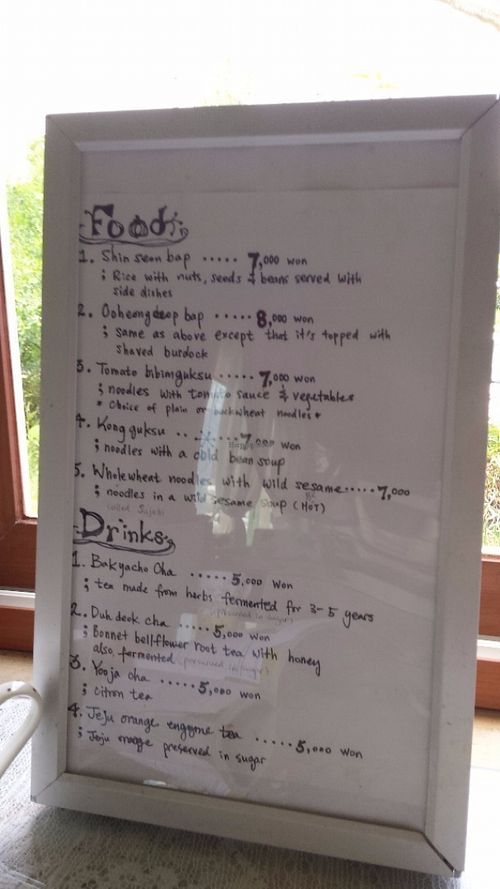 Food
1. Shin seon bap ..... 7,000 won
; Rice with nuts, seeds & beans served with
side dishes
2. Ooheongdeop bap ..... 8,000 won
; same as above except that it's topped with
shaved burdock
3. Tomato bibimguksu ..... 7,000 won
; noodles with tomato sauce & vegetables
* Choice of plain or buckwheat noodles *
4. Kong guksu ..... 7,000 won
; noodles with a cold bean soup
5. Whole wheat noodles with wild sesame ..... 7,000
; noodles in a wild sesame soup (HOT)
called Sujebi
Drinks
1. Bakyacho Cha ..... 5,000 won
; tea made from herbs fermented for 3-5 years
(preserved in sugar)
2. Duh deok cha ..... 5,000 won
; Bonnet bellflower root tea with honey
also fermented (preserved in sugar)
3. Yooja cha ..... 5,000 won
; citron tea
4. Jeju orange engyme tea ..... 5,000 won
; Jeju orange preserved in sugar